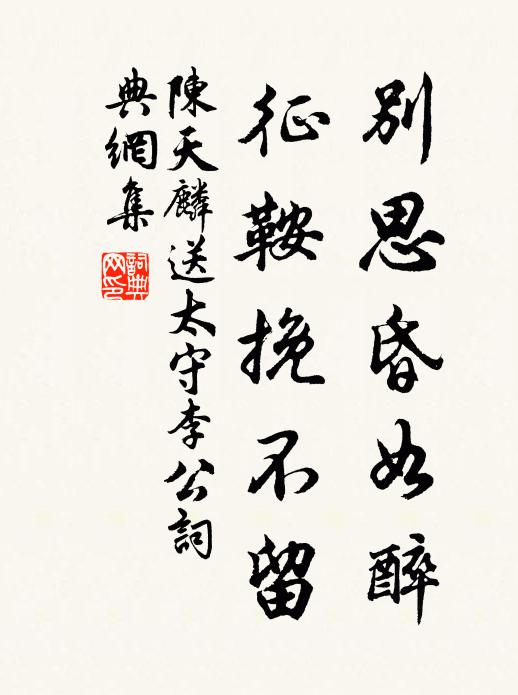 別思昏如醉
征鞍挽不留
陳天麟送太守李公詞
典網集
詞典網印